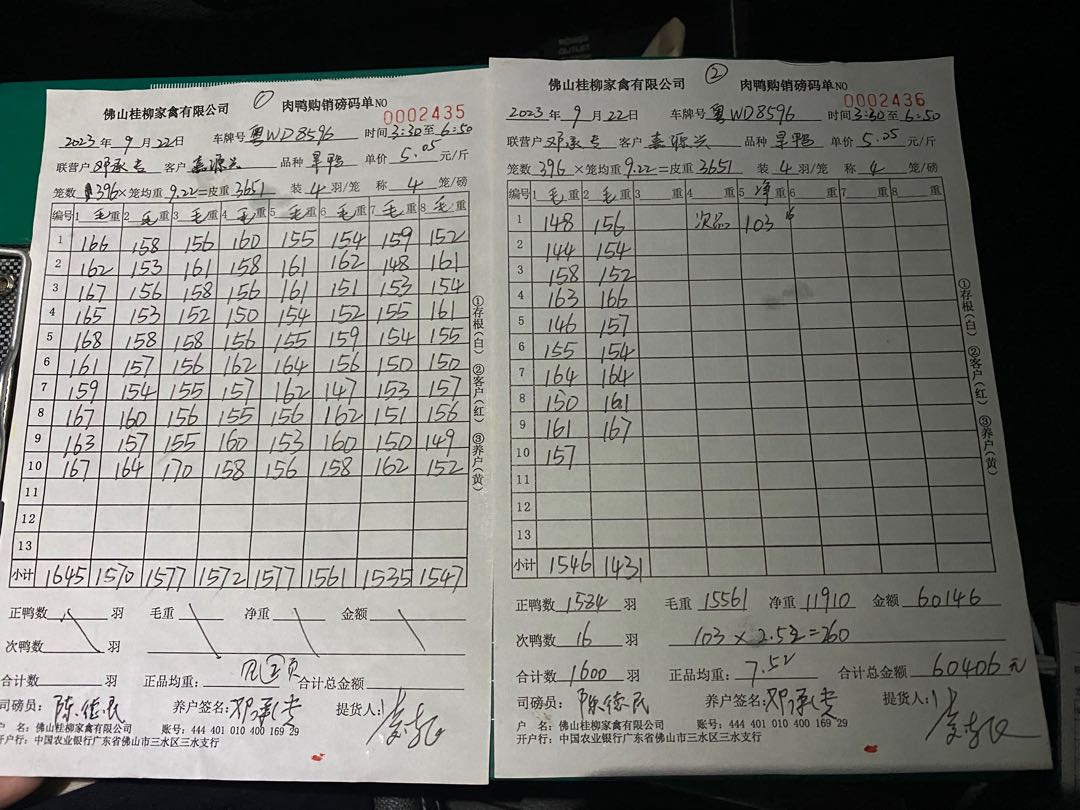 佛山桂柳家禽有限公司 ① 肉鸭购销磅码单NO 0002435
2023年9月22日 车牌号粤WD8596 时间3:30至6:50
联营户邓承贵 客户嘉源兴 品种旱鸭 单价5.05元/斤
笼数396×笼均重9.22=皮重3651 装4羽/笼 称4笼/磅
编号 1毛重 2毛重 3毛重 4毛重 5毛重 6毛重 7毛重 8毛重
1 166 158 156 160 155 154 159 152
2 162 153 161 158 161 162 148 161
3 167 156 158 156 161 151 153 154
4 165 153 152 150 154 152 155 161
5 168 158 158 156 155 159 154 155
6 161 157 156 162 164 156 150 150
7 159 154 155 157 162 147 153 157
8 167 160 156 155 156 162 151 156
9 163 157 155 160 153 160 150 149
10 167 164 170 158 156 158 162 152
11
12
13
小计 1645 1570 1577 1572 1577 1561 1535 1547
正鸭数 羽 毛重 净重 金额
次鸭数 羽
见②页
合计数 羽 正品均重: 合计总金额
司磅员: 陈德民 养户签名: 邓承贵 提货人:
户 名: 佛山桂柳家禽有限公司 账号: 444 401 010 400 169 29
开户行: 中国农业银行广东省佛山市三水区三水支行
①存根(白) ②客户(红) ③养户(黄)
佛山桂柳家禽有限公司 ② 肉鸭购销磅码单NO 0002436
2023年9月22日 车牌号粤WD8596 时间3:30至6:50
联营户邓承贵 客户嘉源兴 品种旱鸭 单价5.05元/斤
笼数396×笼均重9.22=皮重3651 装4羽/笼 称4笼/磅
编号 1毛重 2毛重 3 重 4 重 5净重 6 重 7 重 8 重
1 148 156 次品 103 16
2 144 154
3 158 152
4 163 166
5 146 157
6 155 154
7 164 164
8 150 161
9 161 167
10 157
11
12
13
小计 1546 1431
正鸭数1584羽 毛重15561 净重11910 金额60146
次鸭数16羽 103×2.52=260
合计数1600羽 正品均重: 7.52 合计总金额60406元
司磅员: 陈德民 养户签名: 邓承贵 提货人:
户 名: 佛山桂柳家禽有限公司 账号: 444 401 010 400 169 29
开户行: 中国农业银行广东省佛山市三水区三水支行
①存根(白) ②客户(红) ③养户(黄)